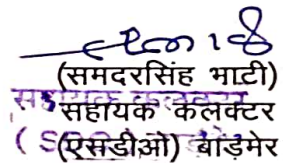 (समदरसिंह भाटी)
सहायक कलेक्टर
(एसडीओ) बाडमेर